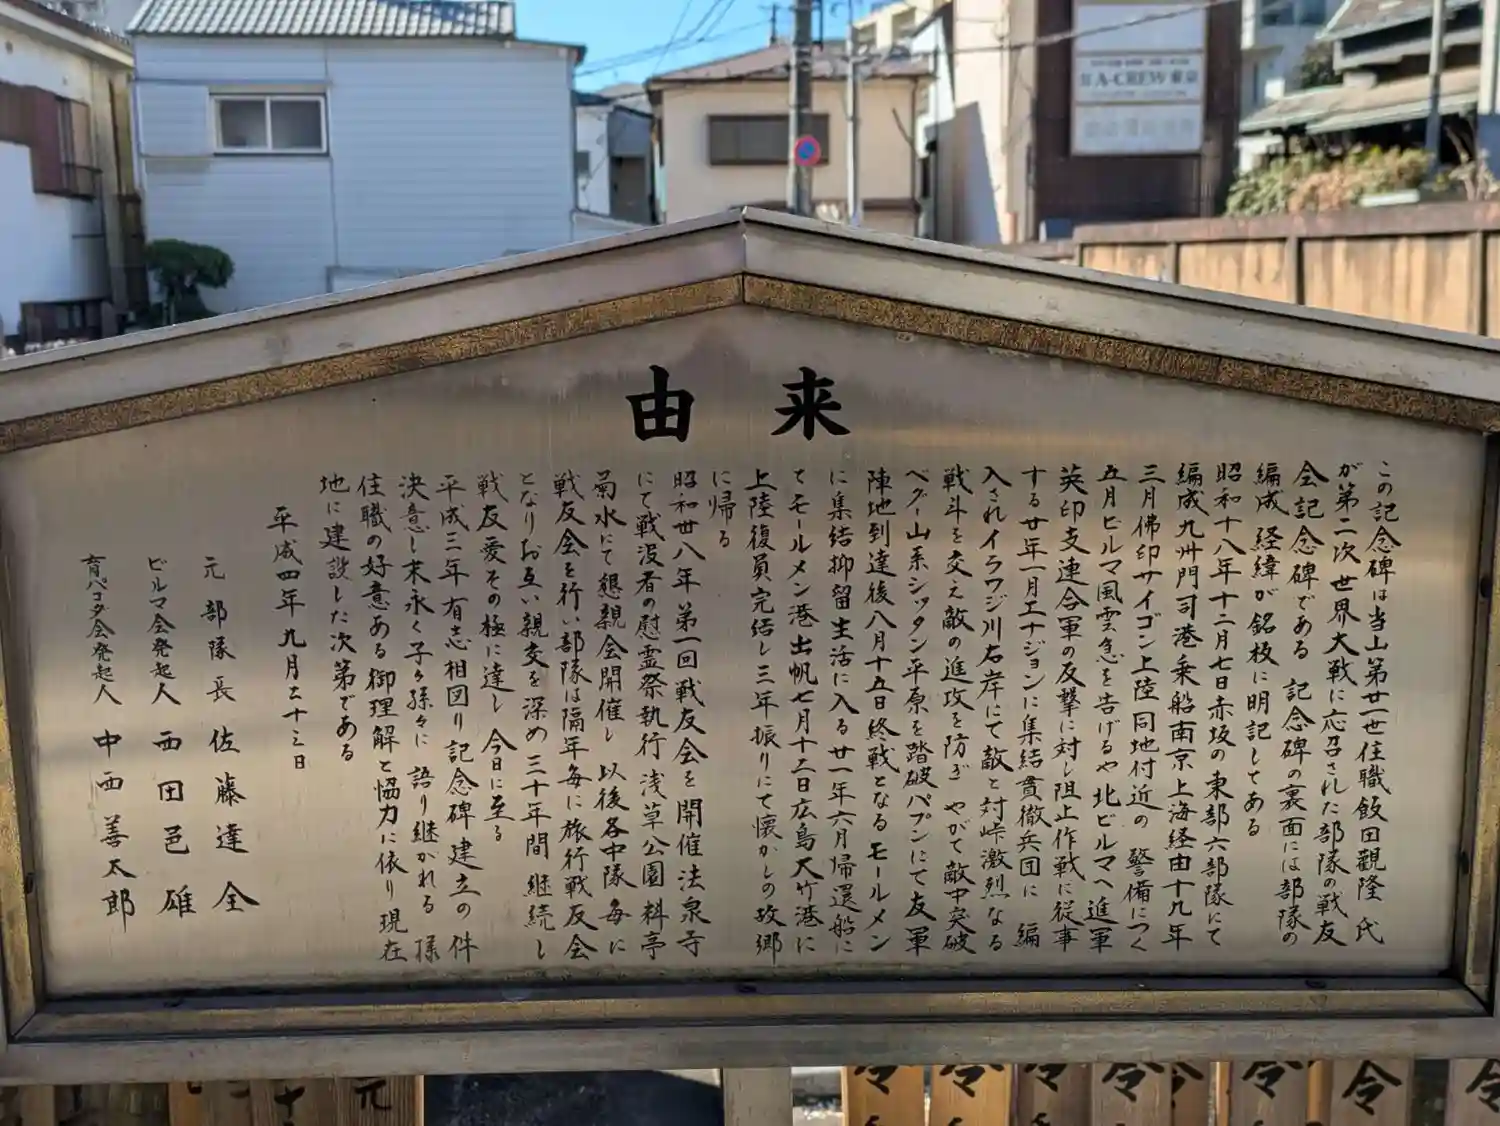 来由
この記念碑は当山第廿一世住職飯田觀隆氏
が第二次世界大戦に応召された部隊の戦友
会記念碑である 記念碑の裏面には部隊の
編成 経緯が銘板に明記してある
昭和十八年十二月七日赤坂の東部六部隊にて
編成九州門司港乗船南京上海経由十九年
三月佛印サイゴン上陸同地付近の 警備につく
五月ビルマ風雲急を告げるや北ビルマへ進軍
英印支連合軍の反撃に対し阻止作戦に従事
する廿年一月エナジョンに集結貫徹兵団に 編
入されイラワジ川右岸にて敵と対峠激烈なる
戦斗を交え敵の進攻を防ぎ やがて敵中突破
ペグー山系シッタン平原を踏破パプンにて友軍
陣地到達後八月十五日終戦となる モールメン
に集結抑留生活に入る廿一年六月帰還船に
てモールメン港出帆七月十三日広島大竹港に
上陸復員完結し三年振りにて懐かしの故郷
に帰る
昭和卅八年第一回戦友会を開催法泉寺
にて戦没者の慰霊祭執行浅草公園料亭
菊水にて懇親会開催し 以後各中隊毎に
戦友会を行い部隊は隔年毎に旅行戦友会
となりお互い親交を深め三十年間継続し
戦友愛その極に達し 今日に至る
平成三年有志相図り記念碑建立の件
決意し末永く子々孫々に 語り継がれる 様
住職の好意ある御理解と協力に依り現在
地に建設した次第である
平成四年九月二十三日
元部隊長 佐藤達全
ビルマ会発起人 西田邑雄
育パゴダ会発起人 中西善太郎
A-CREW東京
令
令
令
令
令
令
令
元